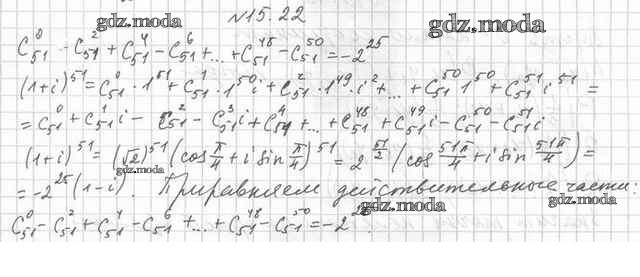 №15.22
gdz.moda gdz.moda
C₅₁⁰ - C₅₁² + C₅₁⁴ - C₅₁⁶ + ... + C₅₁⁴⁸ - C₅₁⁵⁰ = -2²⁵
(1+i)⁵¹ = C₅₁⁰ · 1⁵¹ + C₅₁¹ · 1⁵⁰ i + C₅₁² · 1⁴⁹ · i² + ... + C₅₁⁵⁰ 1 i⁵⁰ + C₅₁⁵¹ i⁵¹ =
= C₅₁⁰ + C₅₁¹ i - C₅₁² - C₅₁³ i + C₅₁⁴ + ... + C₅₁⁴⁸ + C₅₁⁴⁹ i - C₅₁⁵⁰ - C₅₁⁵¹ i
(1+i)⁵¹ = (√2)⁵¹ (cos π/4 + i sin π/4)⁵¹ = 2^(51/2) (cos 51π/4 + i sin 51π/4) =
gdz.moda
= -2²⁵ (1-i) Приравняем действительные части:
gdz.moda gdz.moda
C₅₁⁰ - C₅₁² + C₅₁⁴ - C₅₁⁶ + ... + C₅₁⁴⁸ - C₅₁⁵⁰ = -2²⁵.